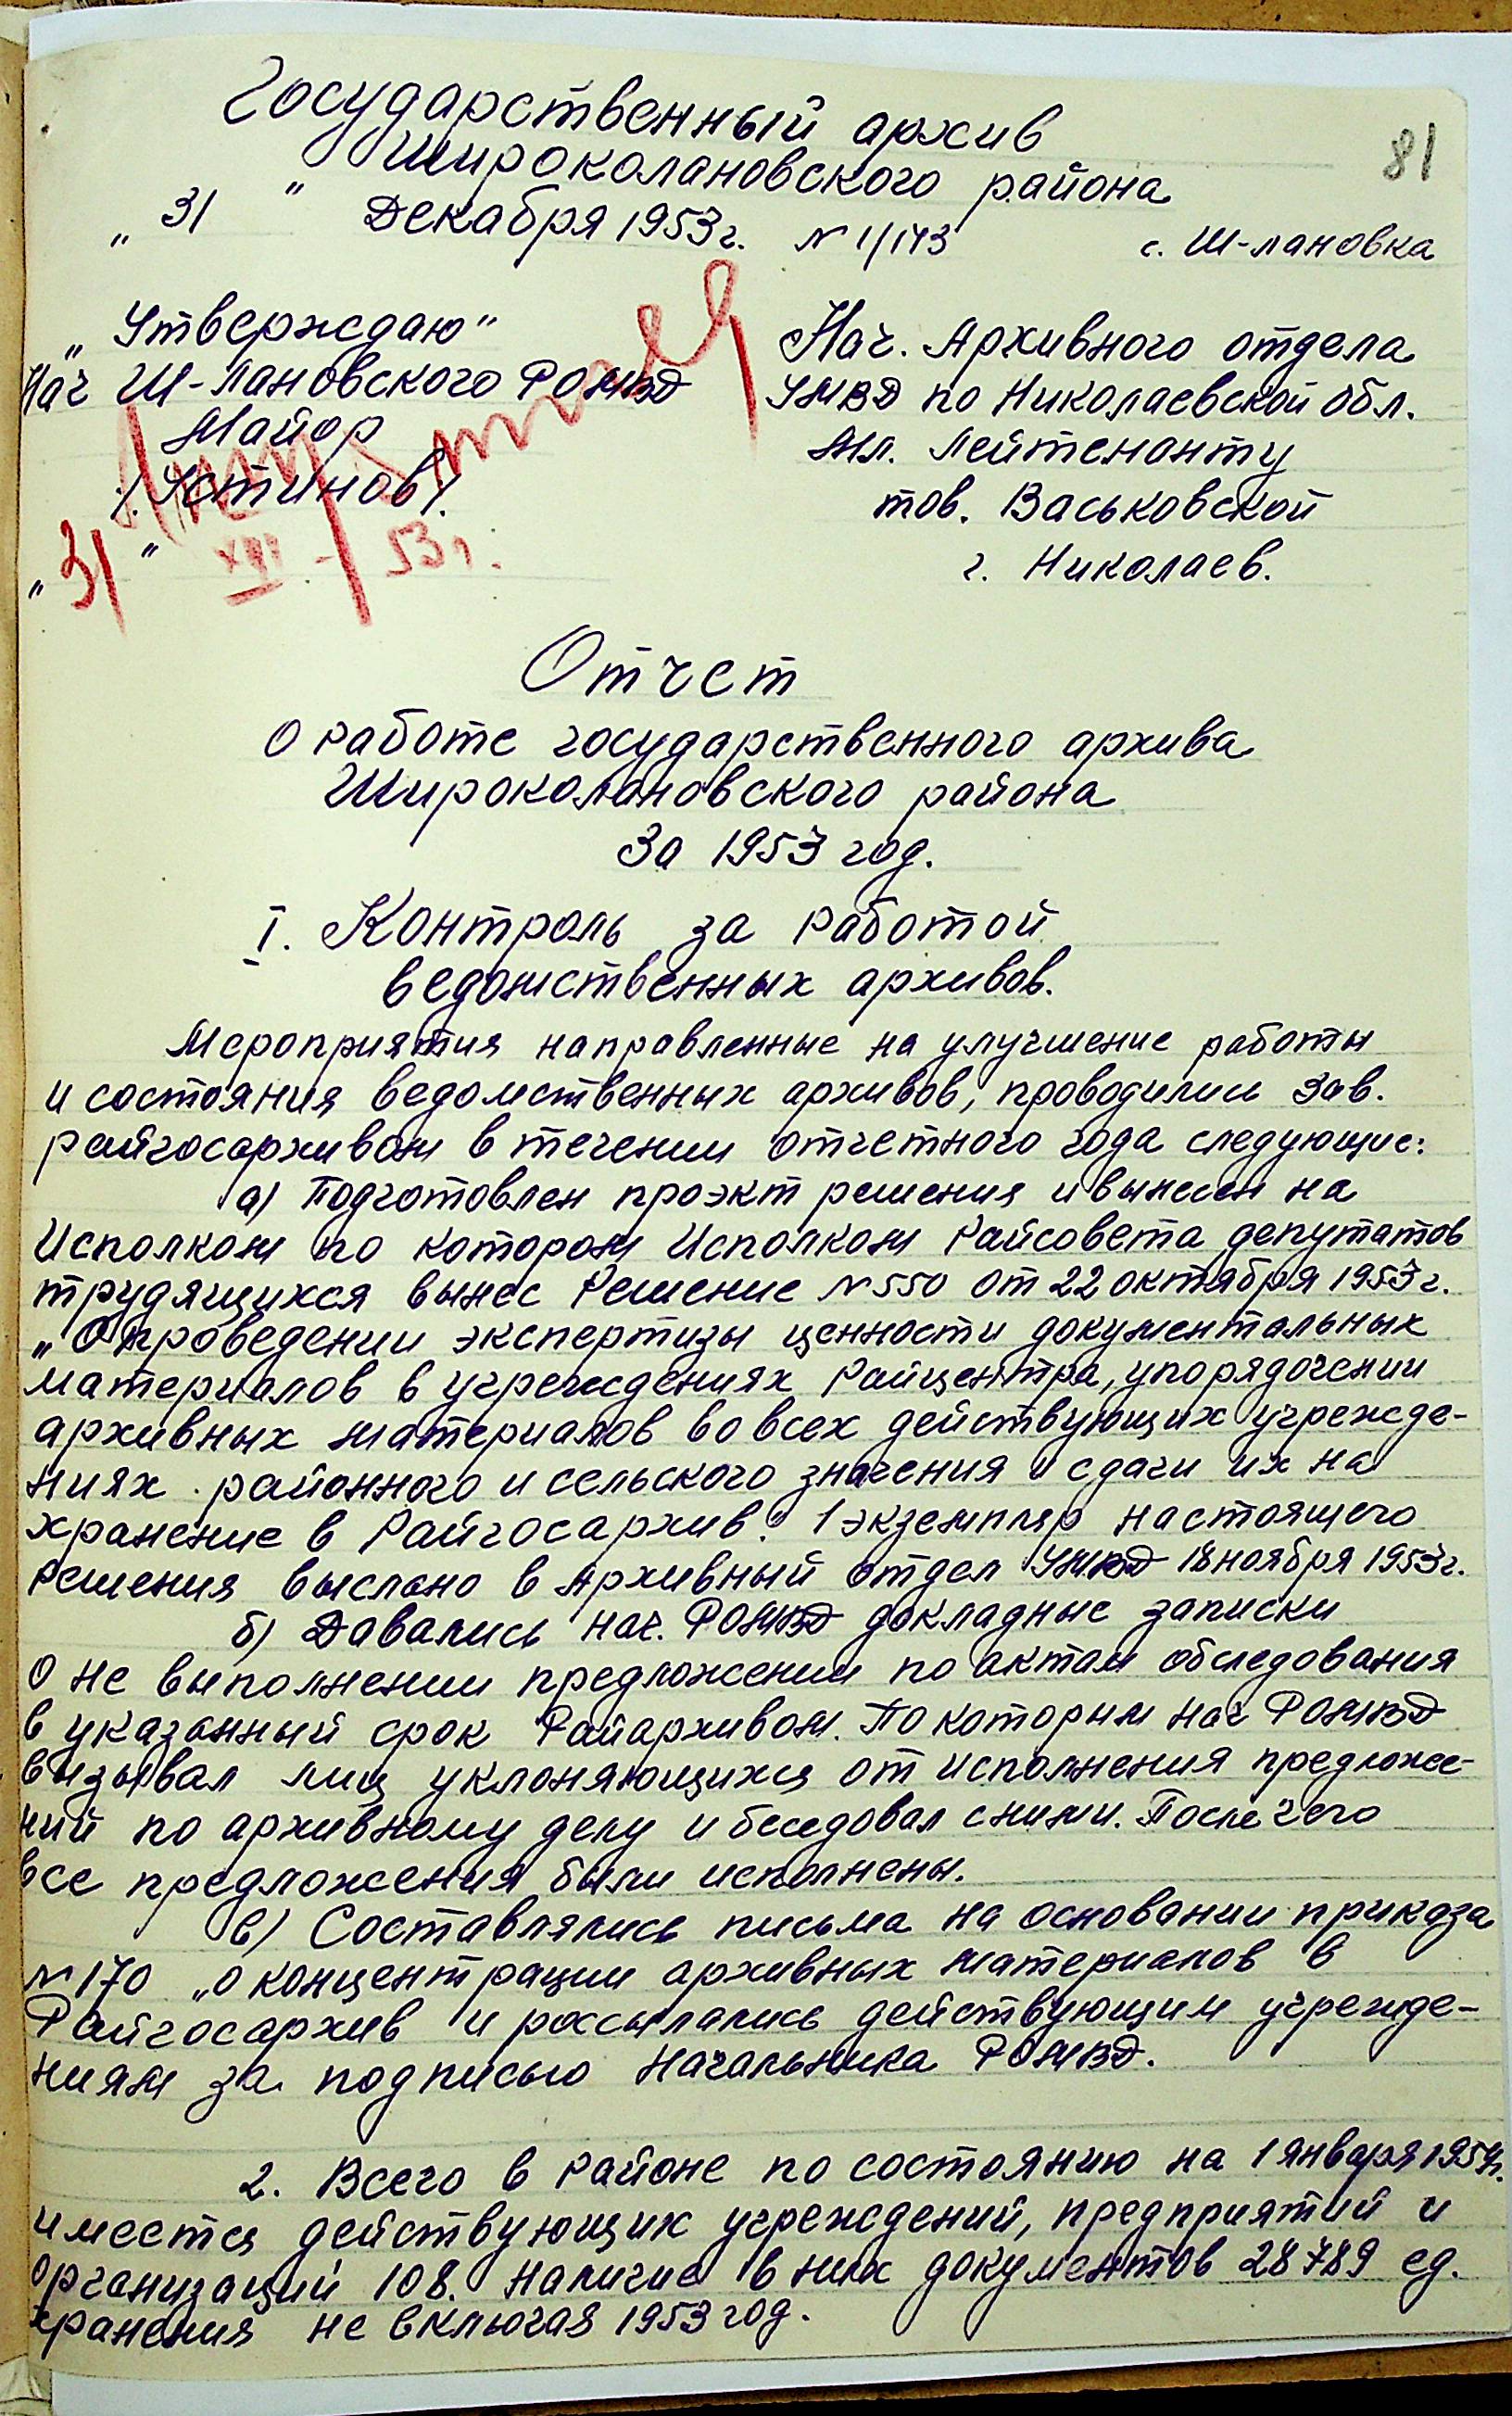 Государственный архив
Широколановского района
81
„ 31 " Декабря 1953 г. № 1/143 с. Ш-лановка
„Утверждаю"
Нач Ш-Лановского РОМВД
Майор
/Устинов/.
„31" XII - 53 г.
Нач. Архивного отдела
УМВД по Николаевской обл.
Мл. Лейтенанту
тов. Васьковской
г. Николаев.
Отчет
О работе государственного архива
Широколановского района
За 1953 год.
I. Контроль за работой
ведомственных архивов.
Мероприятия направленные на улучшение работы
и состояния ведомственных архивов, проводились Зав.
райгосархивом в течении отчетного года следующие:
а) Подготовлен проэкт решения и вынесен на
Исполком по котором Исполком Райсовета депутатов
трудящихся вынес Решение № 550 от 22 октября 1953 г.
„О проведении экспертизы ценности документальных
материалов в учреждениях Райцентра, упорядочении
архивных материалов во всех действующих учрежде-
ниях районного и сельского значения и сдачи их на
хранение в Райгосархив." 1 экземпляр настоящего
Решения выслано в Архивный отдел УМВД 18 ноября 1953 г.
б) Давались нач. РОМВД докладные записки
о не выполнении предложений по актам обследования
в указанный срок Райархивом. По которым нач РОМВД
визывал лиц уклоняющихся от исполнения предложе-
ний по архивному делу и беседовал с ними. После чего
все предложения были исполнены.
в) Составлялись письма на основании приказа
№ 170 „о концентрации архивных материалов в
Райгосархив и россылались действующим учрежде-
ниям за подписью Начальника РОМВД.
2. Всего в Районе по состоянию на 1 января 1954г.
имеется действующих учреждений, предприятий и
организаций 108. Наличие в них документов 28789 ед.
хранения не включая 1953 год.